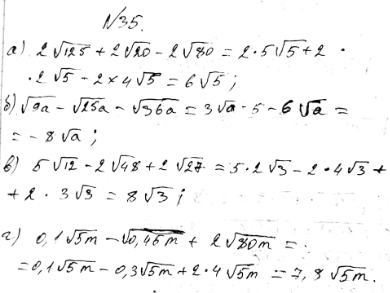 №35.
а) 2√125 + 2√20 - 2√80 = 2·5√5 + 2·
·2√5 - 2×4√5 = 6√5;
б) √9a - √25a - √36a = 3√a - 5 - 6√a =
= -8√a;
в) 5√12 - 2√48 + 2√27 = 5·2√3 - 2·4√3 +
+ 2·3√3 = 8√3;
г) 0,1√5m - √0,45m + 2√80m =
= 0,1√5m - 0,3√5m + 2·4√5m = 7,8√5m.